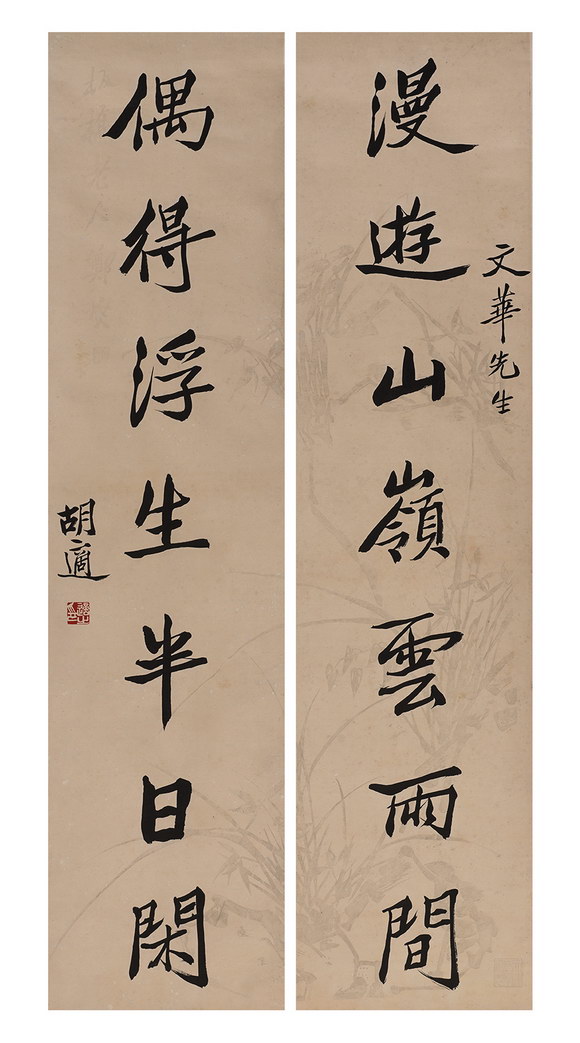 漫遊山嶺雲雨間
文華先生
偶得浮生半日閑
胡適